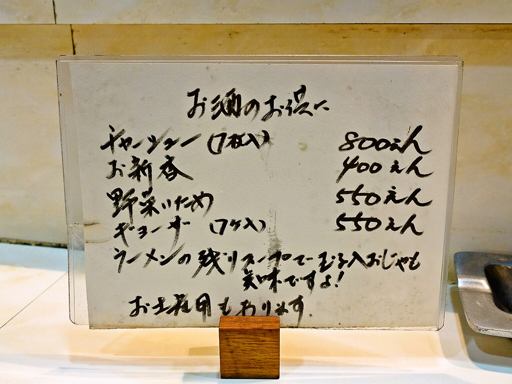 お酒のお供に
チャーシュー(7枚入) 800えん
お新香 400えん
野菜いため 550えん
ギョーザ(7ケ入) 550えん
ラーメンの残りスープで 入おじやも
美味ですよ!
お土産用もあります